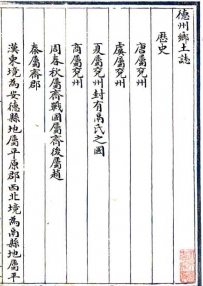 德州鄉土誌
歷史
唐屬兗州
虞屬兗州
夏屬兗州封有鬲氏之國
商屬兗州
周春秋屬齊戰國屬齊後屬趙
秦屬齊郡
漢東境為安德縣地屬平原郡西北境為鬲縣地屬平